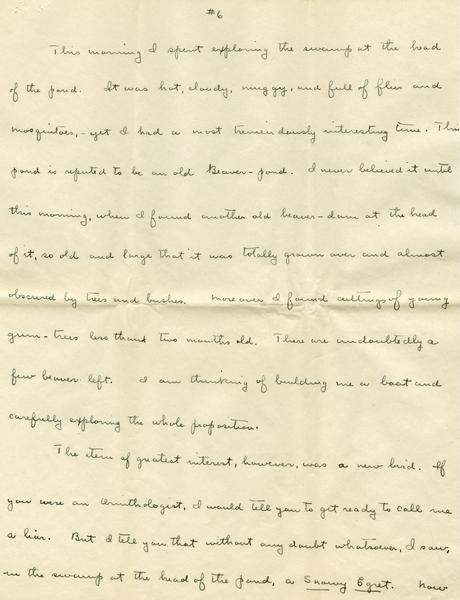 #6
This morning I spent exploring the swamp at the head
of the pond. It was hot, cloudy, muggy, and full of flies and
mosquitoes, - yet I had a most tremendously interesting time. This
pond is reputed to be an old Beaver-pond. I never believed it until
this morning, when I found another old beaver-dam at the head
of it, so old and large that it was totally grown over and almost
obscured by trees and bushes. Moreover I found cuttings of young
gum-trees less than two months old. There are undoubtedly a
few beaver left. I am thinking of building me a boat and
carefully exploring the whole proposition.
The item of greatest interest, however, was a new bird. If
you were an Ornithologist, I would tell you to get ready to call me
a liar. But I tell you that without any doubt whatsoever, I saw,
in the swamp at the head of the pond, a Snowy Egret. Now